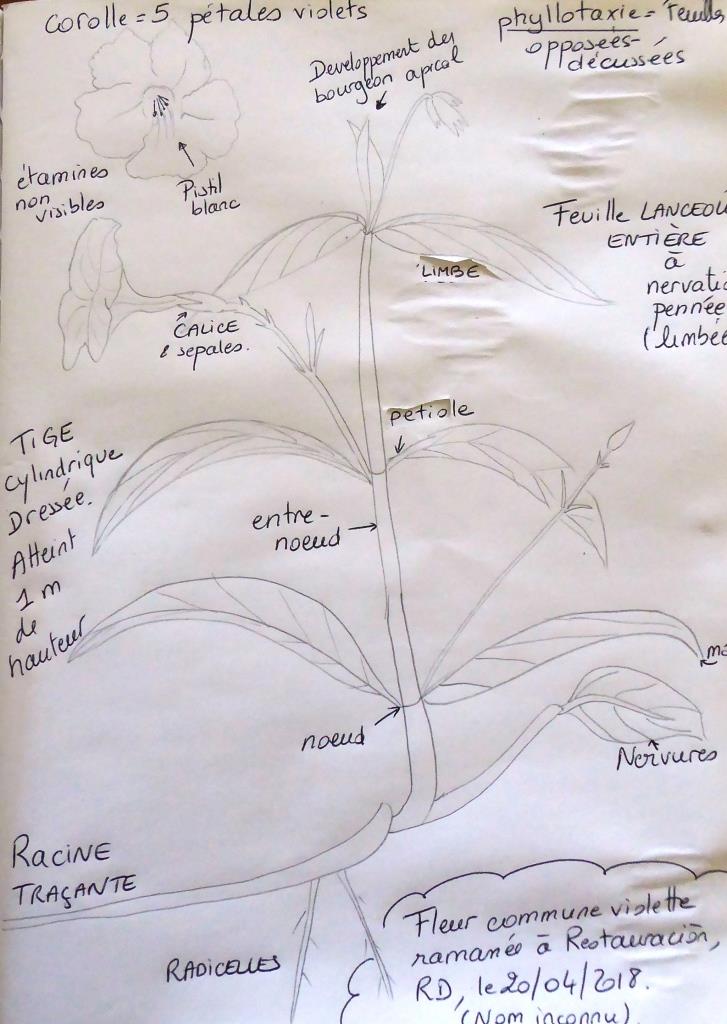 corolle = 5 pétales violets
phyllotaxie = feuilles
opposées-
décussées
Développement du
bourgeon apical
étamines
non
visibles
Pistil
blanc
Feuille LANCEOL
ENTIÈRE
à
nervati
pennée
(limbée
LIMBE
CALICE
sépales.
TIGE
cylindrique
Dressée.
Atteint
1 m
de
hauteur
petiole
entre-
noeud
noeud
Nervures
Racine
TRAÇANTE
RADICELLES
Fleur commune violette
ramanée à Restauración,
RD, le 20/04/2018.
(Nom inconnu).